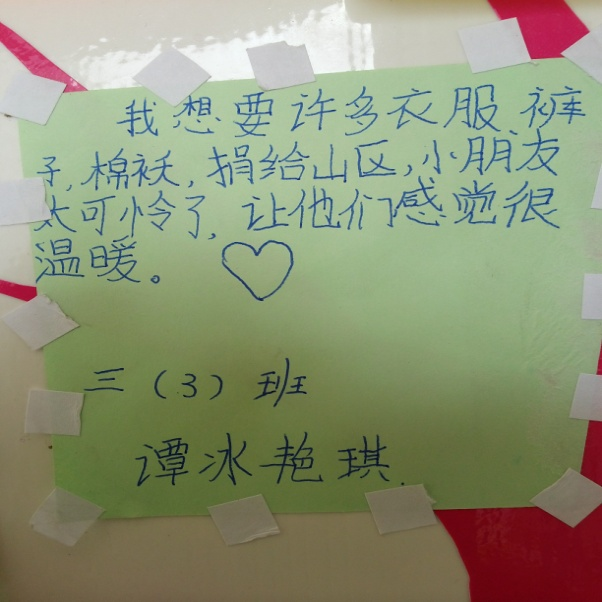 我想要许多衣服、裤
子,棉袄,捐给山区,小朋友
太可怜了,让他们感觉很
温暖。
三(3)班
谭冰艳琪.